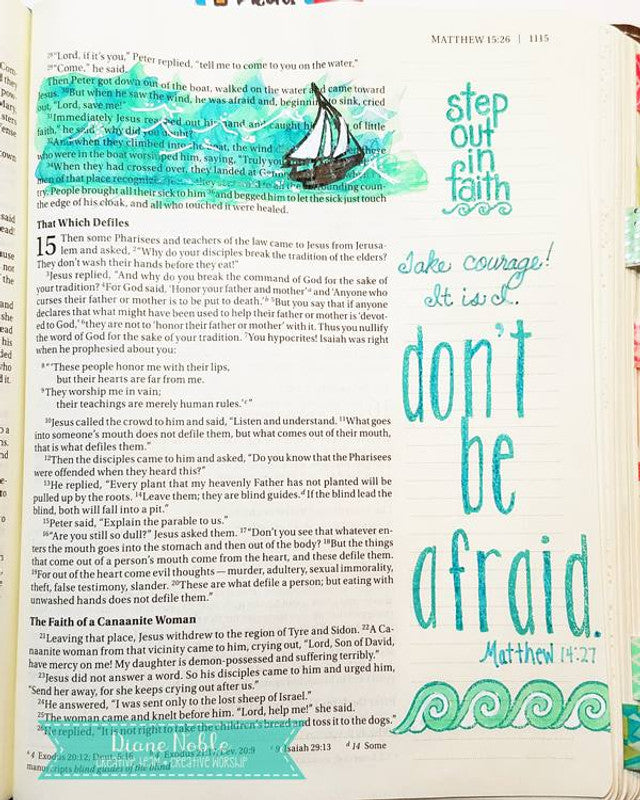 MATTHEW 15:26 | 1115
28"Lord, if it's you," Peter replied, "tell me to come to you on the water."
29"Come," he said.
Then Peter got down out of the boat, walked on the water and came toward
Jesus. 30But when he saw the wind, he was afraid and, beginning to sink, cried
out, "Lord, save me!"
31Immediately Jesus reached out his hand and caught of little
faith," he said, "why did you doubt?"
32And when they climbed into the boat, the wind there
who were in the boat worshiped him, saying, "Truly you
34When they had crossed over, they landed at when
men of that place surrounding coun-
try. People brought all their sick to him 36and begged him to let the sick just touch
the edge of his cloak, and all who touched it were healed.
That Which Defiles
15 Then some Pharisees and teachers of the law came to Jesus from Jerusa-
lem and asked, 2"Why do your disciples break the tradition of the elders?
They don't wash their hands before they eat!"
3Jesus replied, "And why do you break the command of God for the sake of
your tradition? 4For God said, 'Honor your father and mother'a and 'Anyone who
curses their father or mother is to be put to death.'b 5But you say that if anyone
declares that what might have been used to help their father or mother is 'devot-
ed to God,' 6they are not to 'honor their father or mother' with it. Thus you nullify
the word of God for the sake of your tradition. 7You hypocrites! Isaiah was right
when he prophesied about you:
8"'These people honor me with their lips,
but their hearts are far from me.
9They worship me in vain;
their teachings are merely human rules.'c"
10Jesus called the crowd to him and said, "Listen and understand. 11What goes
into someone's mouth does not defile them, but what comes out of their mouth,
that is what defiles them."
12Then the disciples came to him and asked, "Do you know that the Pharisees
were offended when they heard this?"
13He replied, "Every plant that my heavenly Father has not planted will be
pulled up by the roots. 14Leave them; they are blind guides.d If the blind lead the
blind, both will fall into a pit."
15Peter said, "Explain the parable to us."
16"Are you still so dull?" Jesus asked them. 17"Don't you see that whatever en-
ters the mouth goes into the stomach and then out of the body? 18But the things
that come out of a person's mouth come from the heart, and these defile them.
19For out of the heart come evil thoughts — murder, adultery, sexual immorality,
theft, false testimony, slander. 20These are what defile a person; but eating with
unwashed hands does not defile them."
The Faith of a Canaanite Woman
21Leaving that place, Jesus withdrew to the region of Tyre and Sidon. 22A Ca-
naanite woman from that vicinity came to him, crying out, "Lord, Son of David,
have mercy on me! My daughter is demon-possessed and suffering terribly."
23Jesus did not answer a word. So his disciples came to him and urged him,
"Send her away, for she keeps crying out after us."
24He answered, "I was sent only to the lost sheep of Israel."
25The woman came and knelt before him. "Lord, help me!" she said.
26He replied, "It is not right to take the children's bread and toss it to the dogs."
a4 Exodus 20:12; Deut. 5:16 b4 Exodus 21:17; Lev. 20:9 c9 Isaiah 29:13 d14 Some
manuscripts blind guides of the blind
Diane Noble
CREATIVE TEAM • CREATIVE WORSHIP
step
out
in
faith
Take courage!
It is I.
don't
be
afraid.
Matthew 14:27